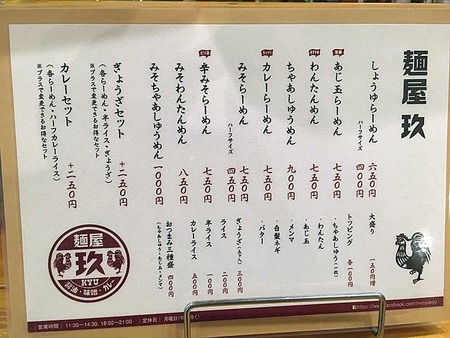 麺屋 玖
しょうゆらーめん 六五〇円
ハーフサイズ 四〇〇円
あじ玉らーめん 七五〇円
わんたんめん 七五〇円
ちゃあしゅうめん 九〇〇円
カレーらーめん 七五〇円
みそらーめん 七五〇円
ハーフサイズ 四五〇円
辛みそらーめん 七五〇円
みそわんたんめん 八五〇円
みそちゃあしゅうめん 一〇〇〇円
ぎょうざセット +二五〇円
(各らーめん・半ライス・ぎょうざ)
※プラスで変更できるお得なセット
カレーセット +二五〇円
(各らーめん・ハーフカレーライス)
※プラスで変更できるお得なセット
大盛り 一五〇円増
トッピング 各一〇〇円
・ちゃあしゅう
・わんたん
・あじ玉
・メンマ
・白髪ネギ
・バター
ぎょうざ 三〇〇円
ライス 二〇〇円
半ライス 一〇〇円
カレーライス 五〇〇円
おつまみ三種盛 四〇〇円
(ちゃあしゅう・あじ玉・メンマ)
麺屋
玖
KYU
醤油・味噌・カレー
営業時間 11:30~14:30, 18:00~21:00 定休日 月曜日